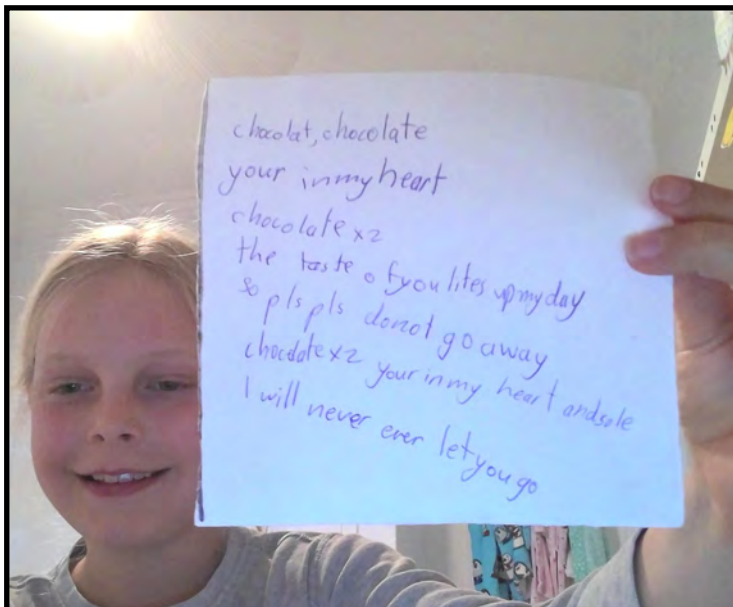 chocolat, chocolate
your in my heart
chocolate x2
the taste of you lites up my day
so pls pls donot go away
chocolate x2 your in my heart and sole
I will never ever let you go